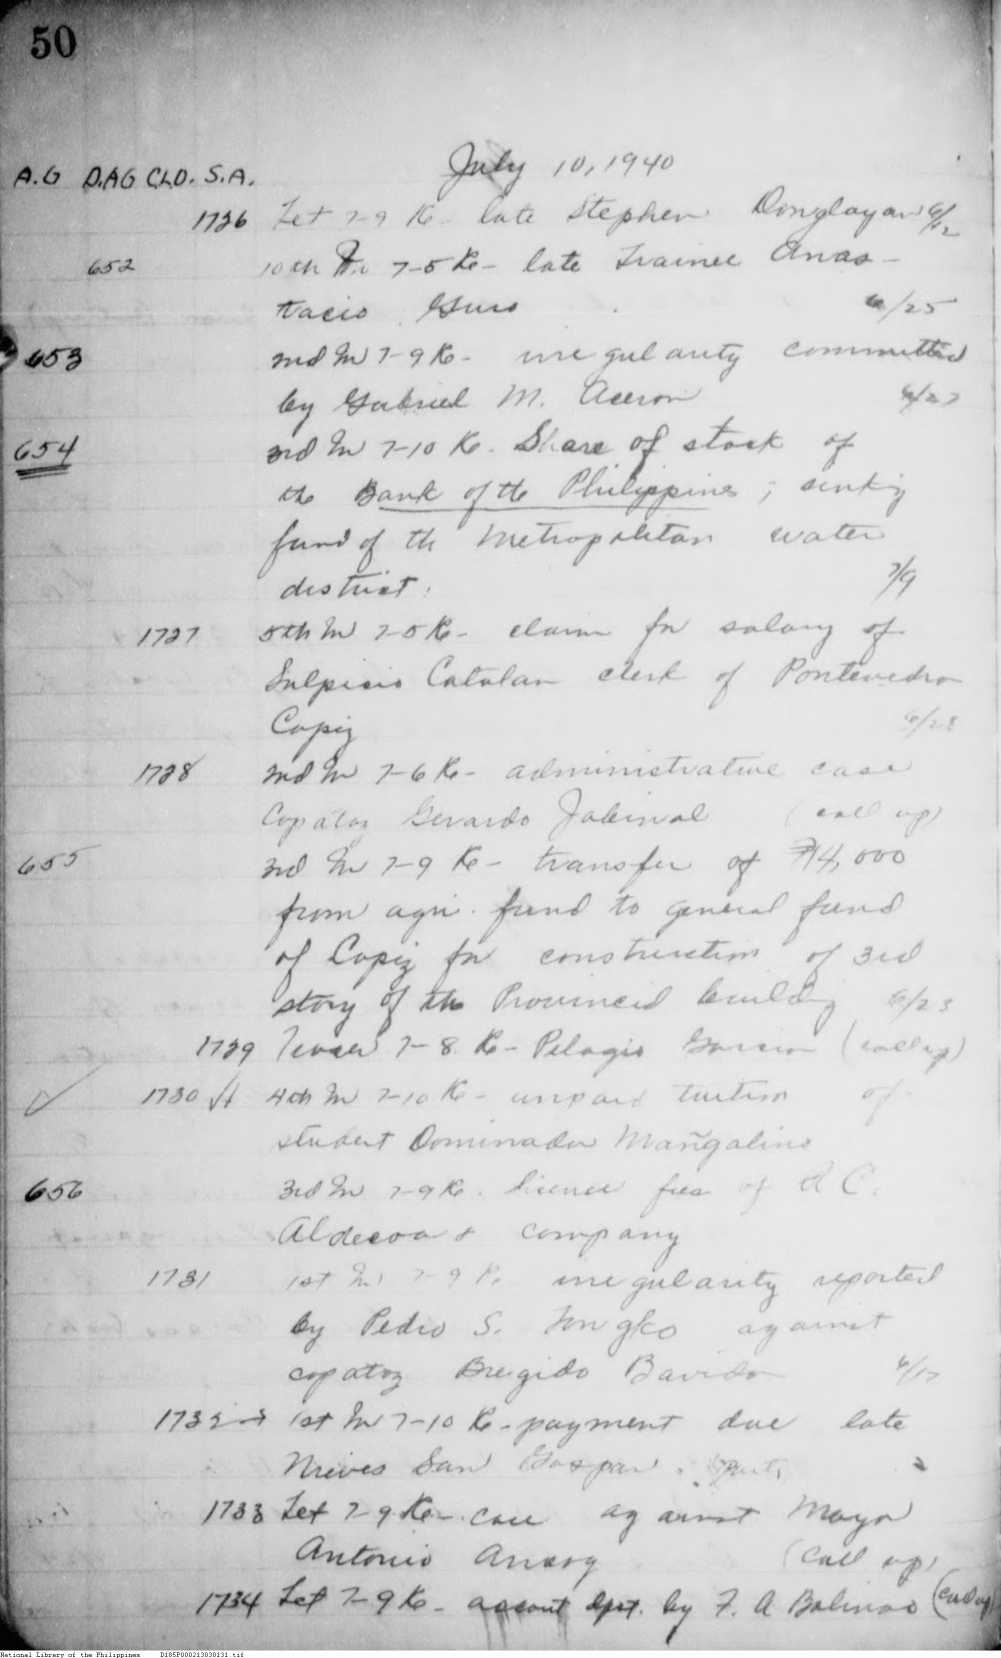 50
July 10, 1940
A.G D.AG CLD. S.A.
1726 Let 7-9 Re- late Stephen Donglayan 6/12
652 10th In 7-5 Re- late Trainee Anas-
tacio Guro 6/25
653 2nd In 7-9 Re- irregularity committed
by Gabriel M. Aceron 6/27
654 3rd In 7-10 Re. Share of stock of
the Bank of the Philippines; sinking
fund of the Metropolitan water
district. 7/9
1727 5th In 7-5 Re- claim for salary of
Sulpicio Catalan clerk of Pontevedra
Capiz 6/28
1728 2nd In 7-6 Re- administrative case
Copatoz Gerardo Jabinal (call up)
655 3rd In 7-9 Re- transfer of ₱14,000
from agri. fund to general fund
of Capiz for construction of 3rd
story of the Provincial building 6/23
1729 7-8 Re- Pelagio (call up)
1730 4th In 7-10 Re- unpaid tuition of
student Dominador Mañgalino
656 3rd In 7-9 Re. license fees of A C.
Aldecoa & company
1731 1st In 7-9 Re irregularity reported
by Pedro S. Tongko against
copatoz Bregido 6/17
1732 1st In 7-10 Re- payment due late
Nieves San Gaspar.
1733 Let 7-9 Re- case against Mayor
Antonio (call up)
1734 Let 7-9 Re- by F. A Bolinao (call up)
National Library of the Philippines D185P000213030131.tif